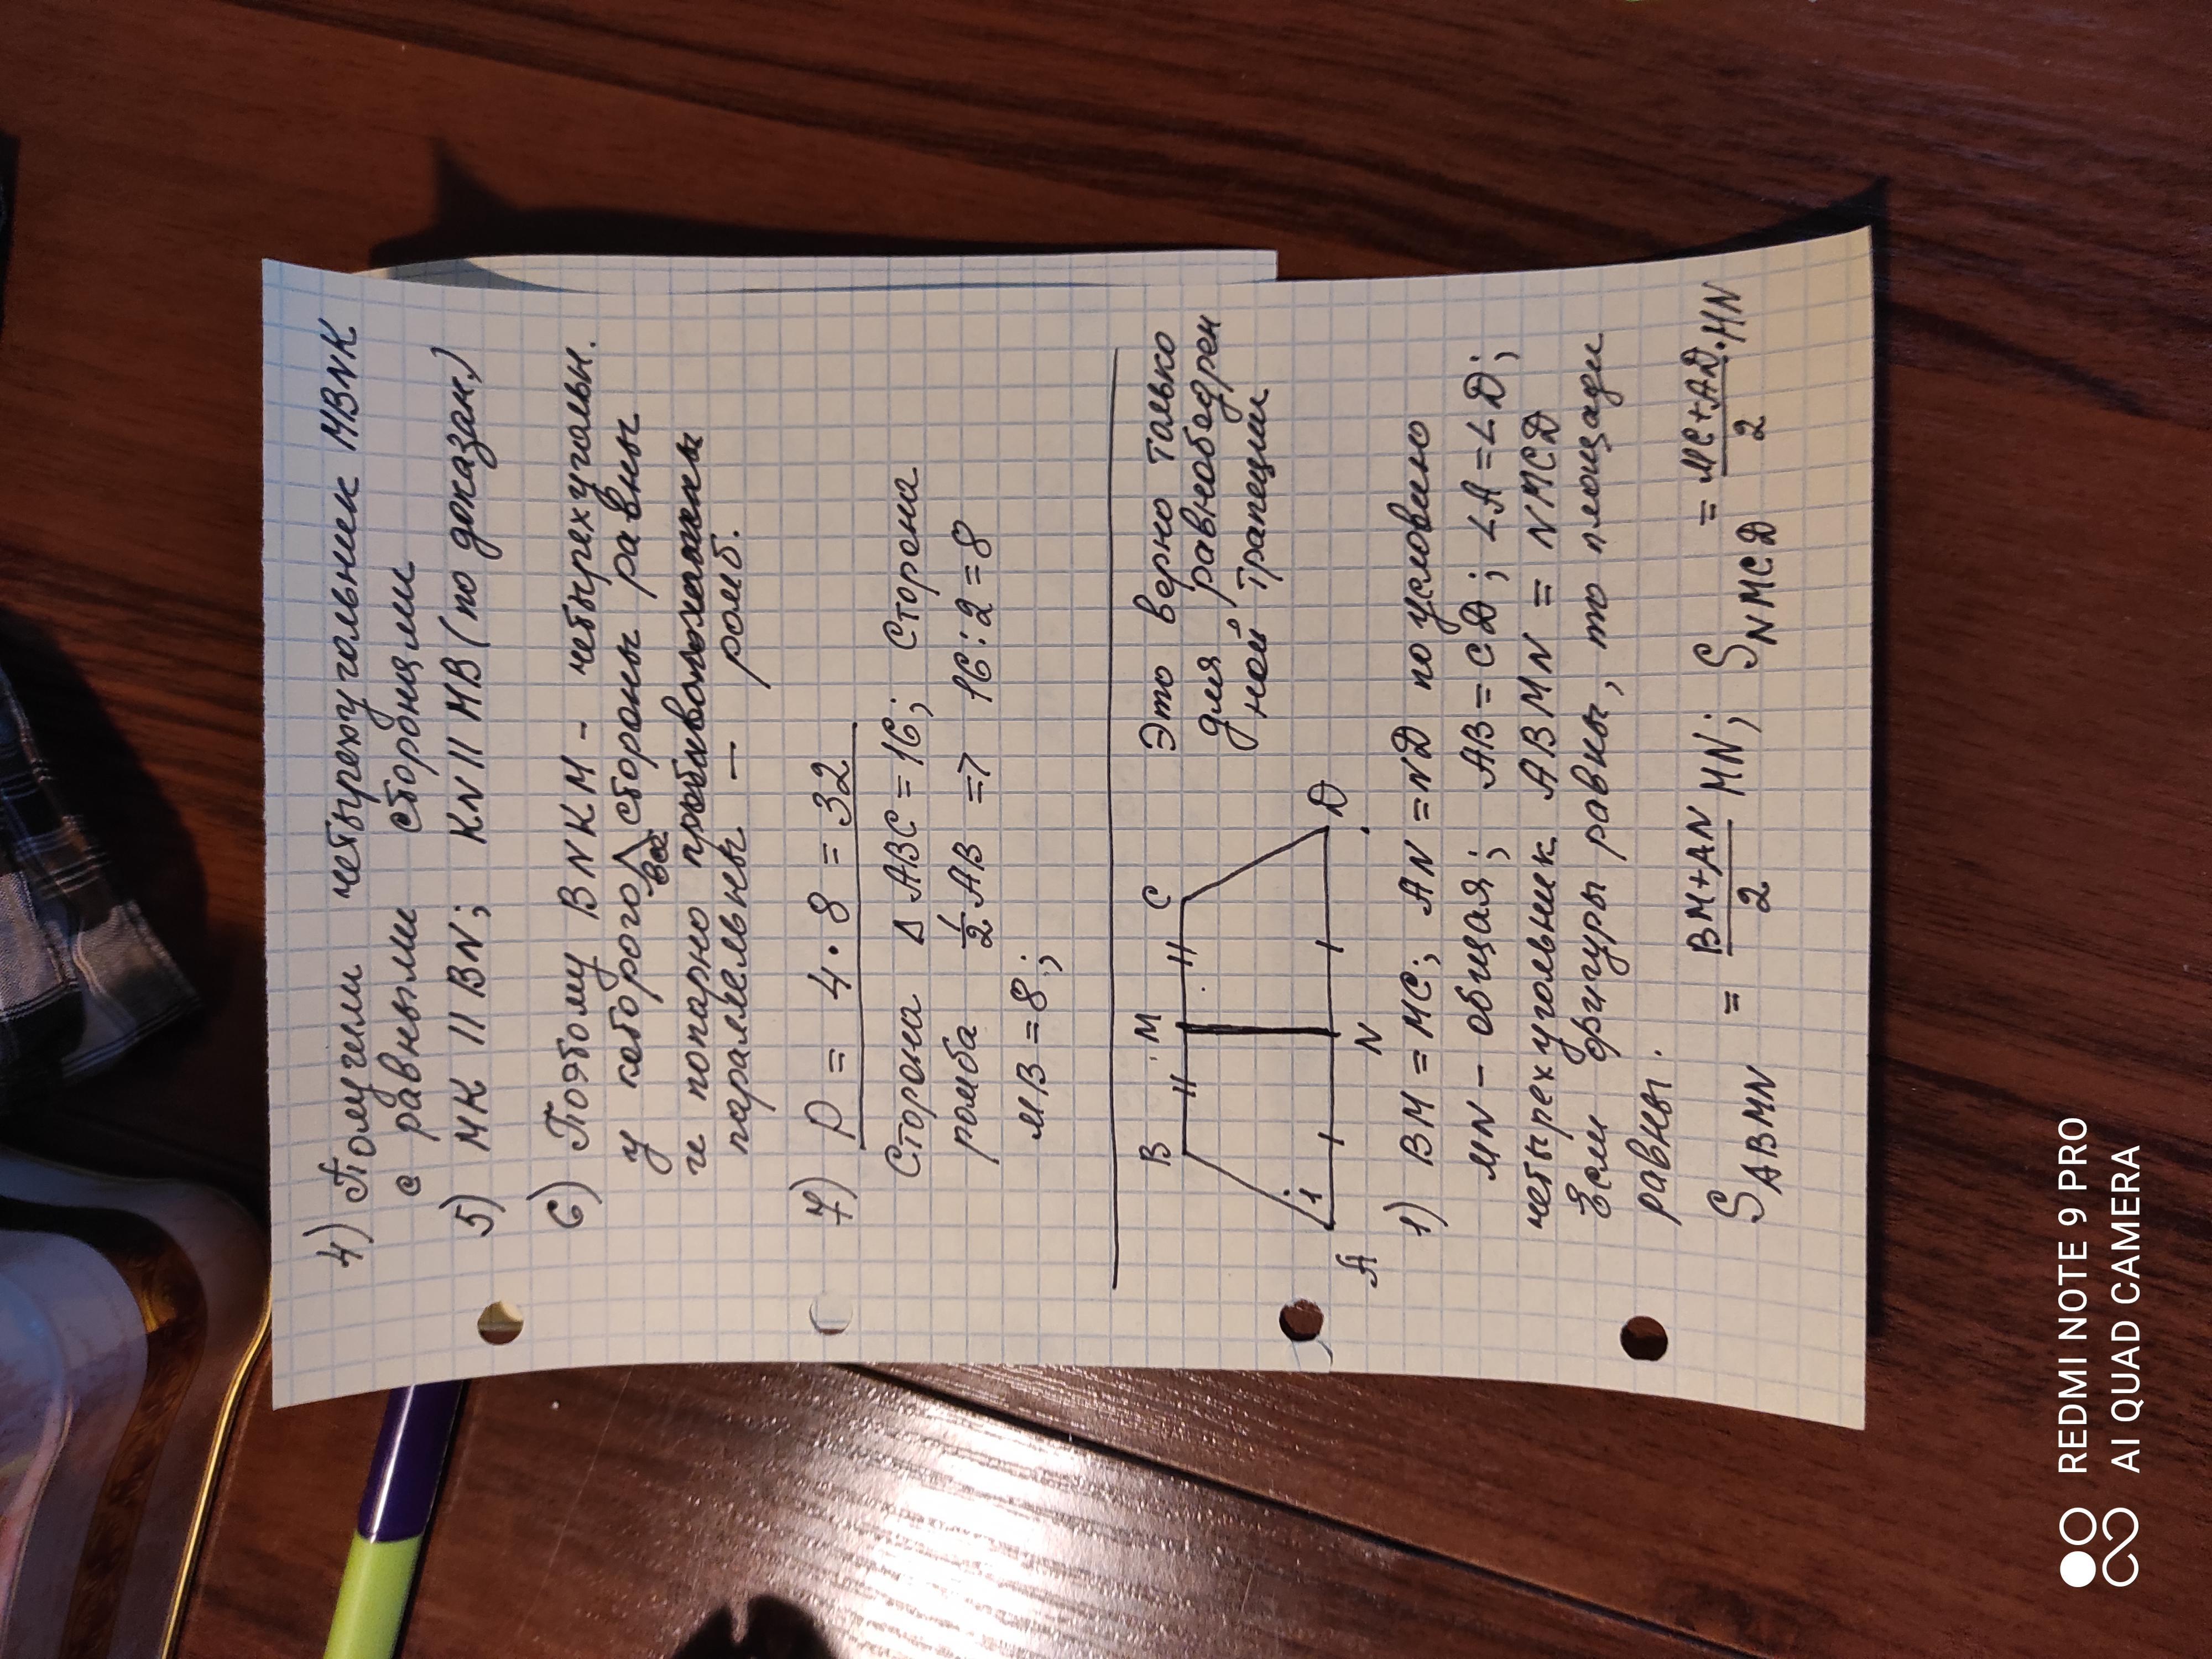 4) Получели четырехугольник MBNK
с равными сторонами
5) MK || BN; KN || MB (по доказан.)
6) Поэтому BNKM - четырехугольн.
у которого все стороны равны
и попарно противоположны
паралельны — ромб.
7) P = 4 · 8 = 32
Сторона Δ ABC = 16; Сторона
ромба 1/2 AB => 16:2=8
MB = 8;
Это верно только
для равнобедрен
ной трапеции
B M C
A N D
1
1) BM = MC; AN = ND по условию
MN - общая; AB = CD; ∠A = ∠D;
четырехугольник ABMN = NMCD
Если фигуры равны, то площади
равны.
S ABMN = (BM+AN)/2 MN; S NMCD = (MC+AD)/2 · MN
REDMI NOTE 9 PRO
AI QUAD CAMERA